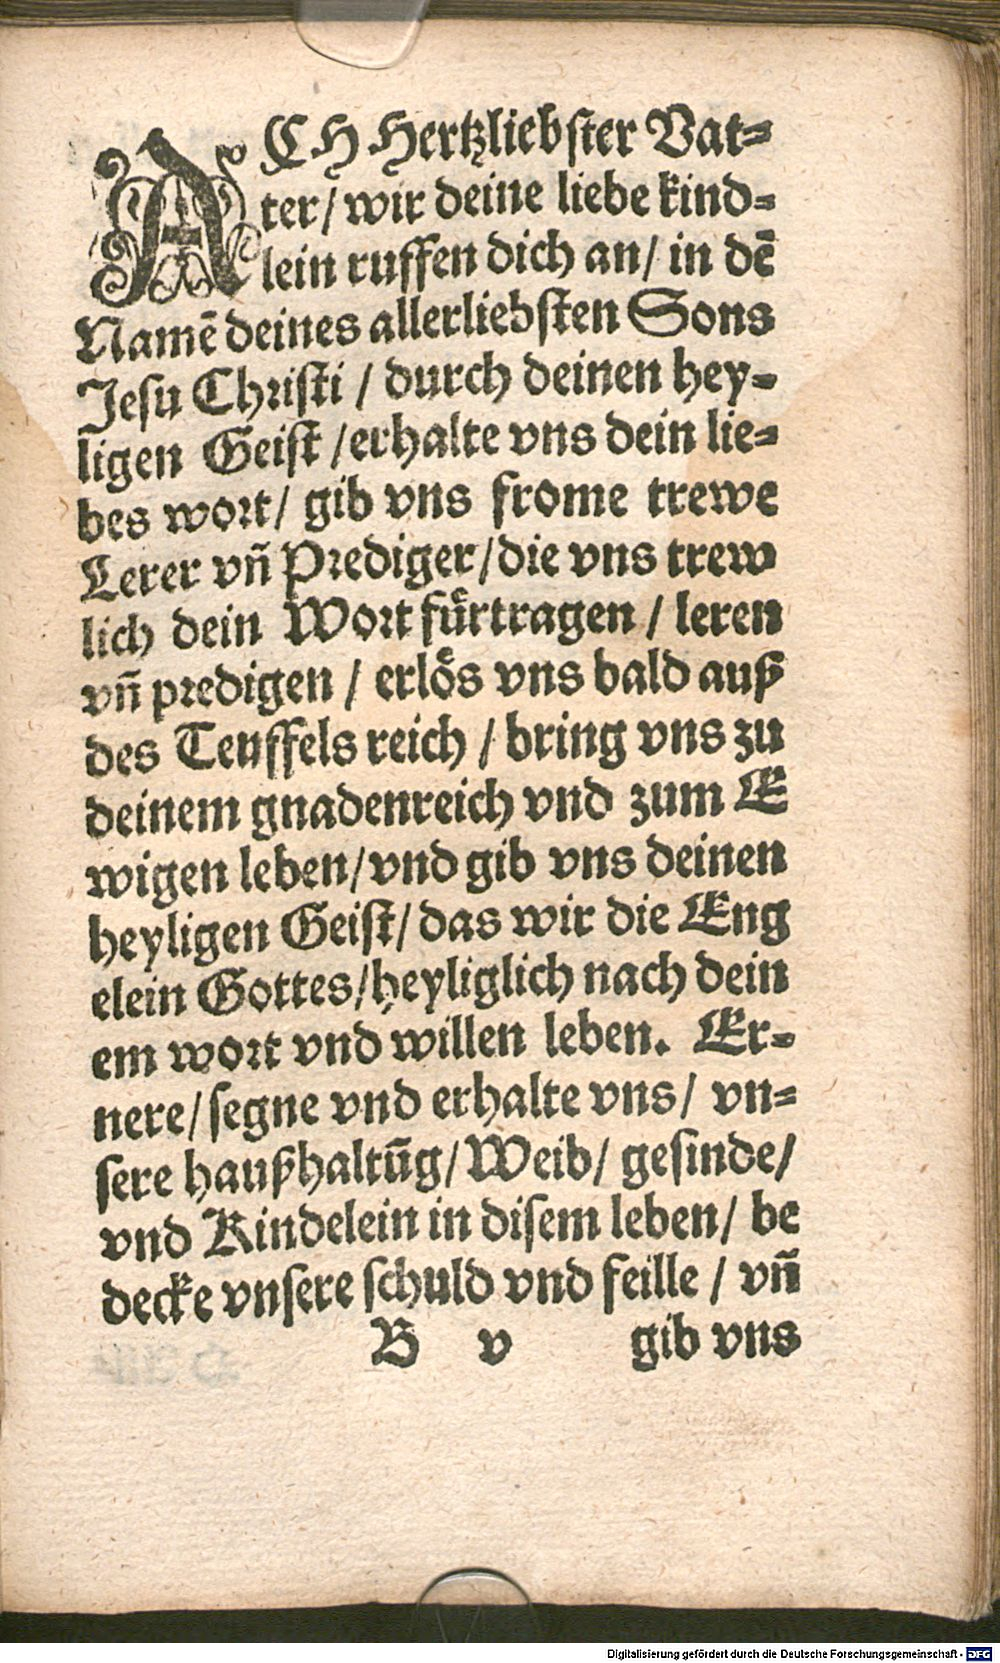 ACH Hertzliebster Vat=
ter/ wir deine liebe kind=
lein ruffen dich an/ in dẽ
Namẽ deines allerliebsten Sons
Jesu Christi / durch deinen hey=
ligen Geist /erhalte vns dein lie=
bes wort/ gib vns frome trewe
Lerer vñ Prediger/die vns trew
lich dein Wort fuͤrtragen / leren
vñ predigen / erloͤs vns bald auß
des Teuffels reich / bring vns zu
deinem gnadenreich vnd zum E
wigen leben/vnd gib vns deinen
heyligen Geist/ das wir die Eng
elein Gottes/heyliglich nach dein
em wort vnd willen leben. Er=
nere/segne vnd erhalte vns/ vn=
sere haußhaltũg/Weib/ gesinde/
vnd Kindelein in disem leben/ be
decke vnsere schuld vnd feille / vñ
B v gib vns
Digitalisierung gefördert durch die Deutsche Forschungsgemeinschaft - DFG